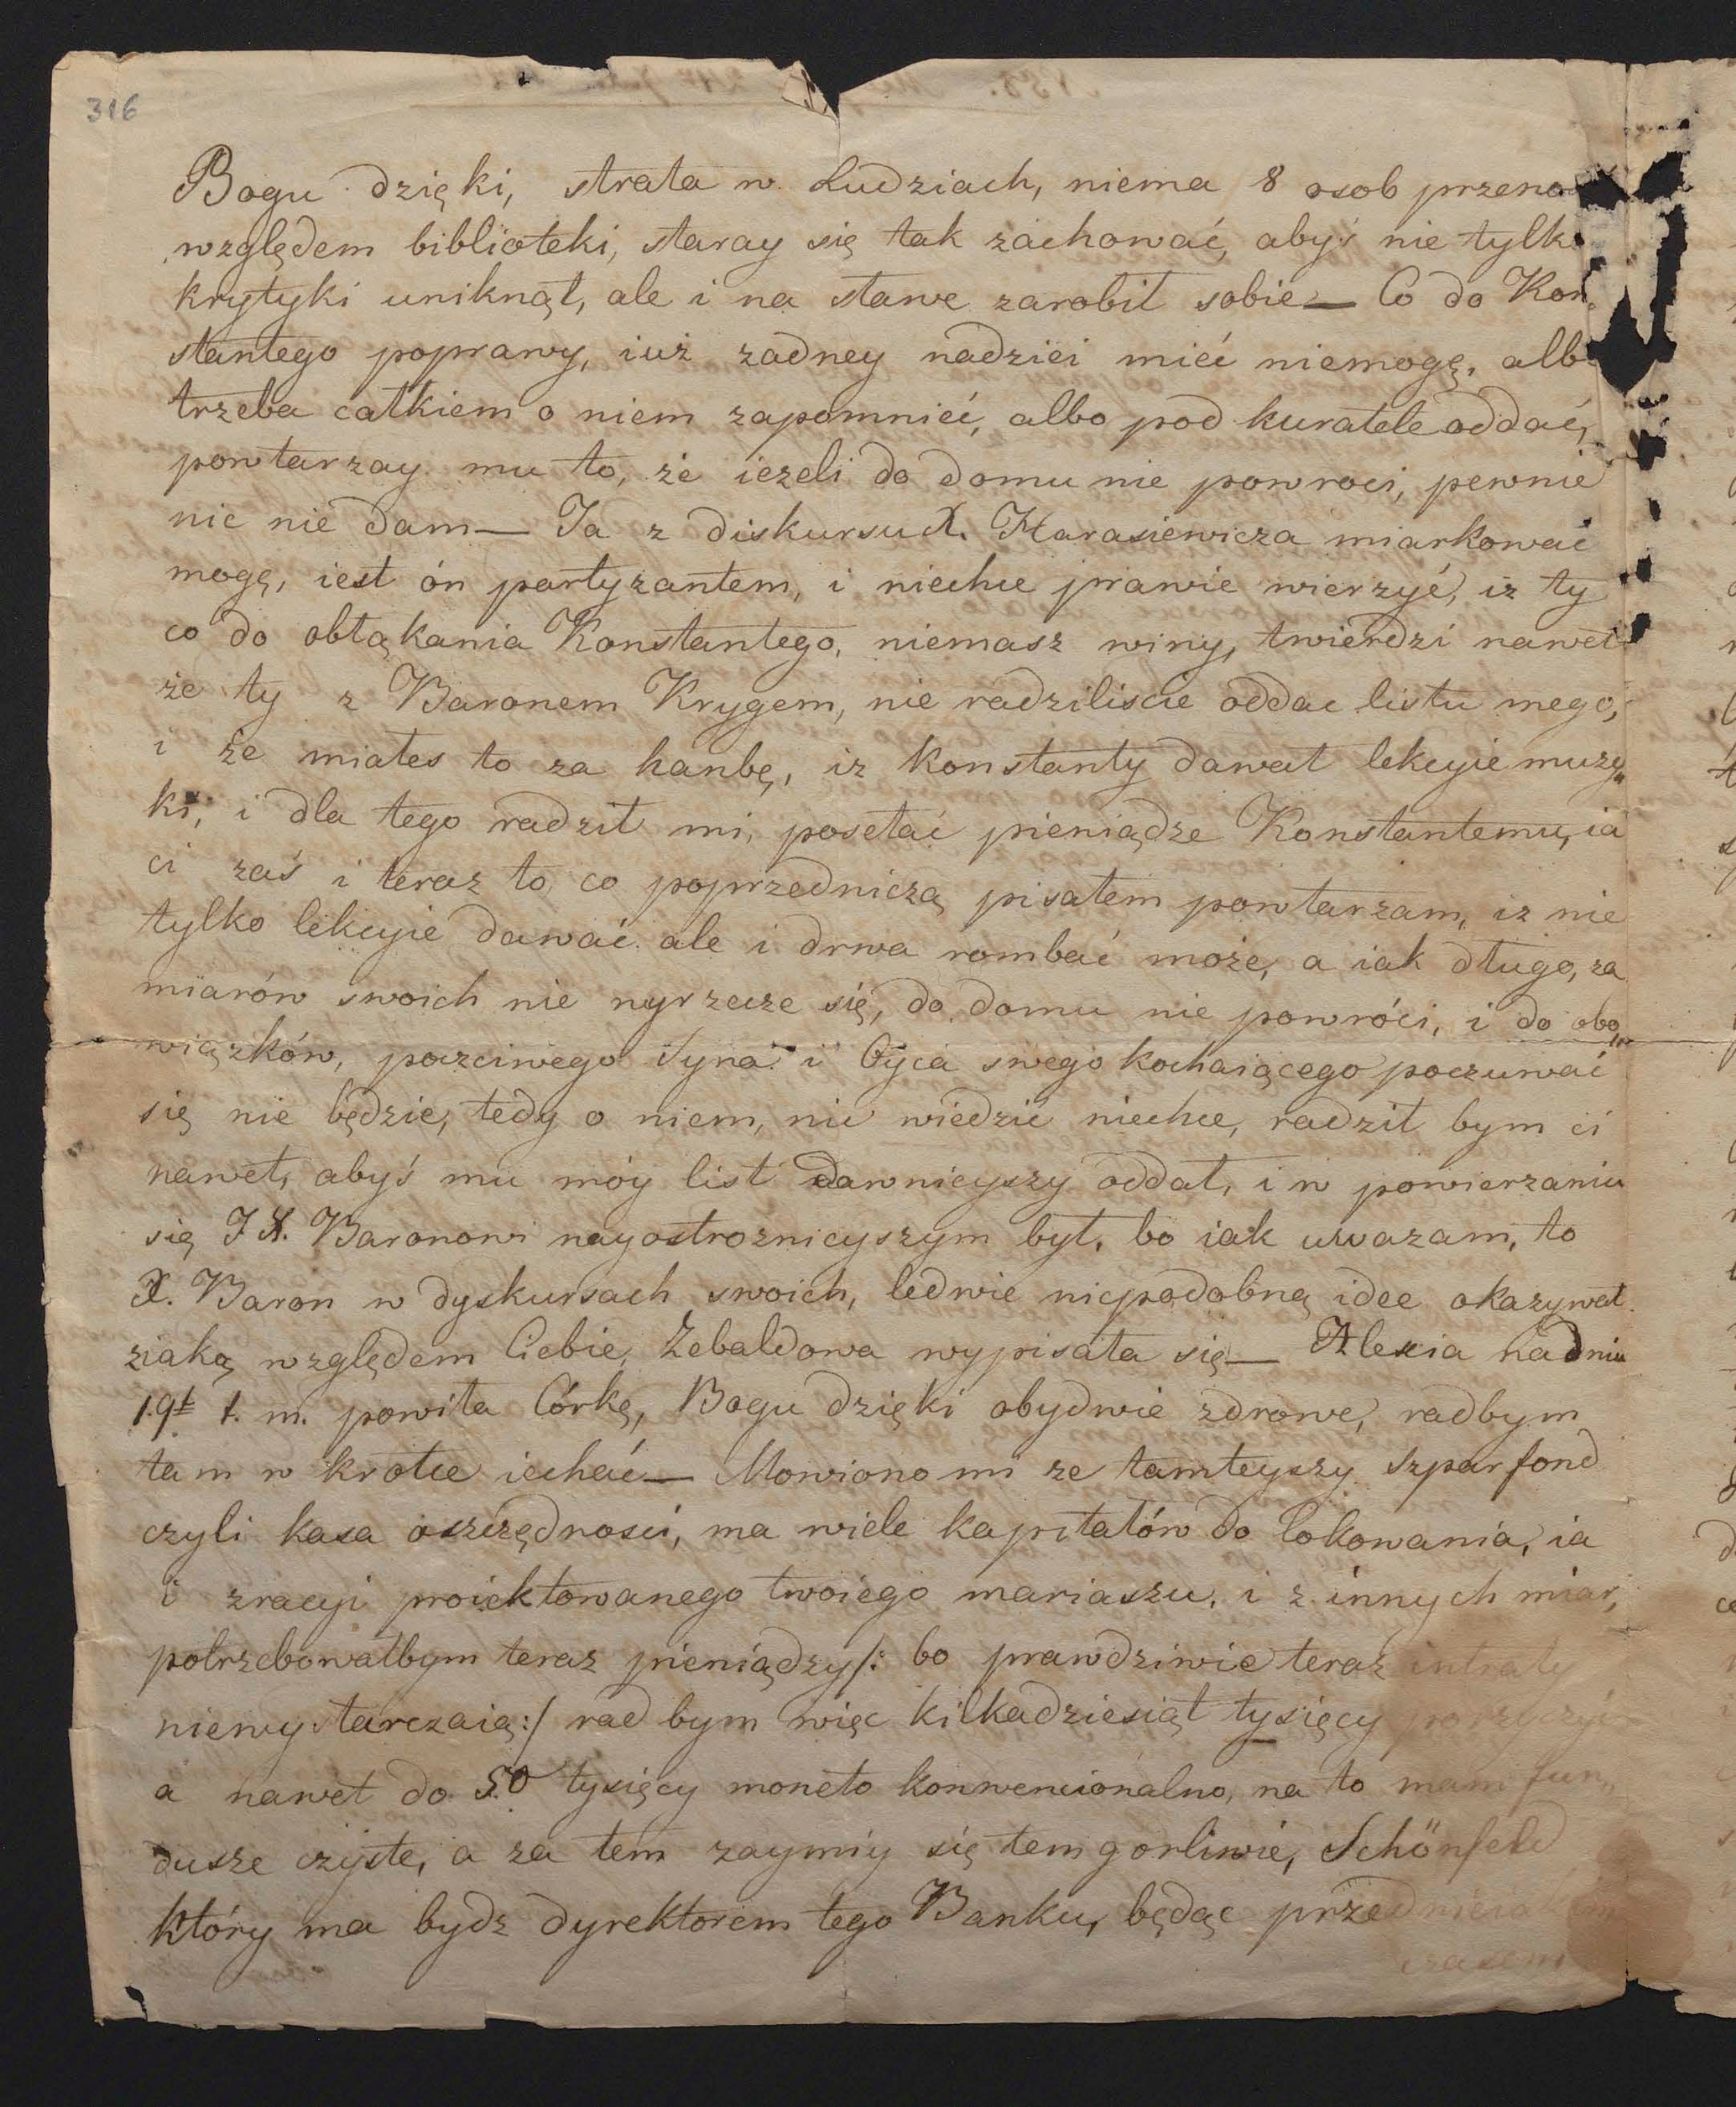 316
Bogu dzięki, strata w Ludziach, niema 8 osob
względem biblioteki, staray się tak zachować, abyś nie tylko
krytyki uniknął, ale i na sławe zarobił sobie— Co do Kon„
stantego poprawy, iuż zadney nadziei mieć niemogę, albo
trzeba całkiem o niem zapomnieć, albo pod kuratele oddać,
powtarzay mu to, że ieżeli do domu nie powroci, pewnie
nic nie dam— Ja z diskursu X. Harasiewicza miarkować
mogę, iest ón partyzantem, i niechce prawie wierzyć, iz ty
co do obłąkania Konstantego, niemasz winy, twierdzi nawet
że ty z Baronem Krygem, nie radziliscie oddac listu mego,
i że miałes to za hanbę, iz Konstanty dawał lekcyie muzy„
ki, i dla tego radził mi, posełać pieniądze Konstantemu, ia
ci zaś i teraz to co poprzedniczą pisałem powtarzam, iz nie
tylko lekcyie dawać ale i drwa rombać może, a iak długo, za
miarów swoich nie wyrzecze się, do domu nie powróci, i do obo„
wiązków, poczciwego Syna i Oyca swego kochaiącego poczuwać
się nie będzie, tedy o niem, nic wiedzić niechce, radził bym ci
nawet, abyś mu móy list dawnieyszy oddał, i w powierzaniu
się JX. Baronowi nayostroznieyszym był, bo iak uwazam, to
X. Baron w dyskursach swoich, ledwie niepodobną idee okazywał
ziaką względem Ciebie, Zebaldowa wypisała się— Alexia na dniu
19t t. m. powiła Córkę, Bogu dzięki obydwie zdrowe, radbym
tam w krotce iechać— Mowiono mi ze tamteyszy Szparfond
czyli kasa oszczędnosci, ma wiele kapitałów do lokowania, ia
i zracyi proiektowanego twoiego mariaszu, i z innych miar,
potrzebowałbym teraz pieniądzy/: bo prawdziwie teraz intraty
niewystarczaią:/ rad bym więc kilkadziesiąt tysięcy pozyczyć
a nawet do 50 tysięcy moneto konwencionalno, na to mam fun„
dusze czyste, a za tem zaymiy się tem gorliwie, Schönfeld
który ma bydz dyrektorem tego Banku, będąc
czasem